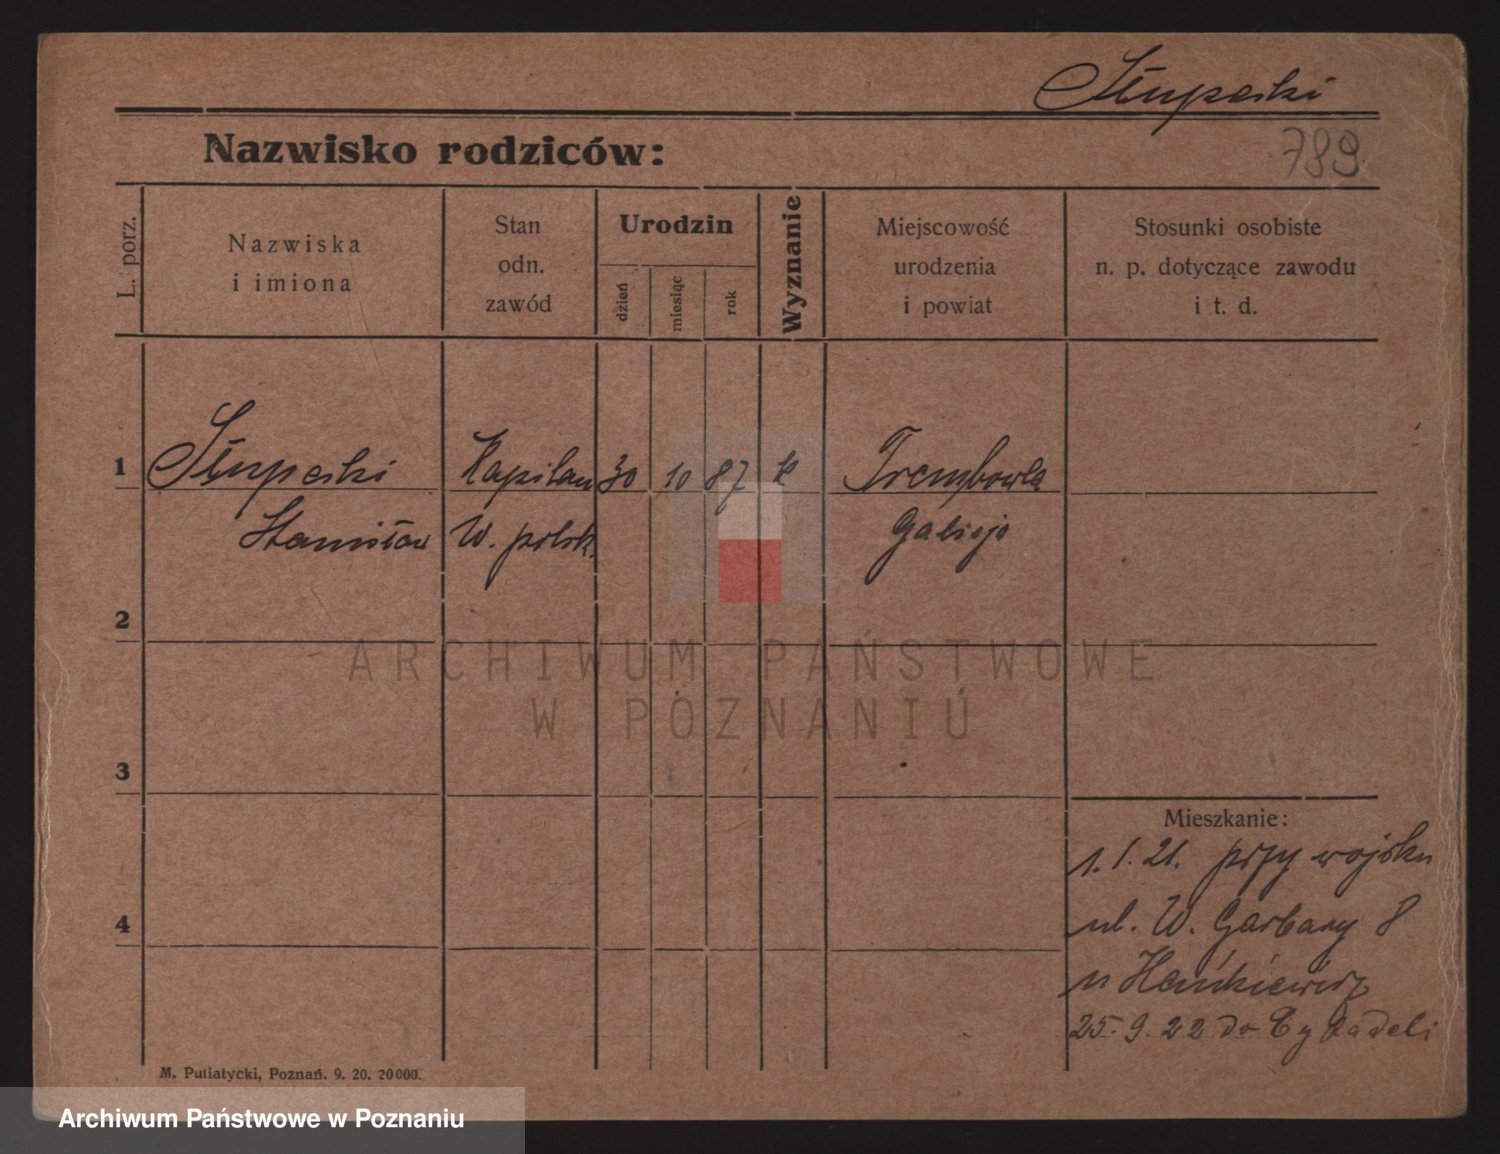 Słupecki
Nazwisko rodziców:
789
L. porz.
Nazwiska
i imiona
Stan
odn.
zawód
Urodzin
dzień
miesiąc
rok
Wyznanie
Miejscowość
urodzenia
i powiat
Stosunki osobiste
n. p. dotyczące zawodu
i t. d.
1
Słupecki
Kapitan
30
10
87
k
Trembowla
Stanisław
W. polsk.
Galicja
2
ARCHIWUM PAŃSTWOWE
W POZNANIU
3
Mieszkanie:
1.1.21. przy wojsku
4
ul. W. Garbary 8
u
25.9.22 do Cytadeli
M. Putiatycki, Poznań. 9. 20. 20000.
Archiwum Państwowe w Poznaniu